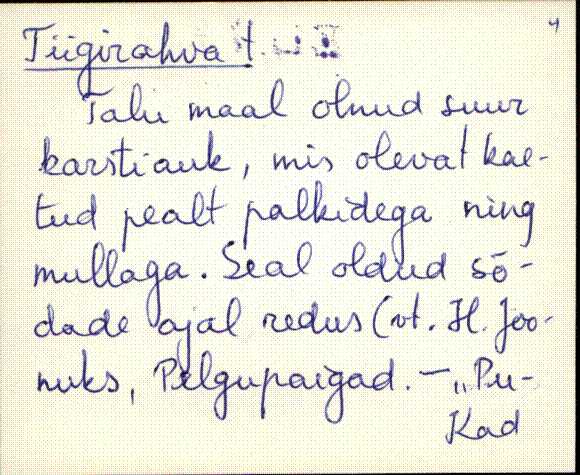 Tiigirahva t.
Talu maal olnud suur
karstiauk, mis olevat kae-
tud pealt palkidega ning
mullaga. Seal oldud sõ-
dade ajal redus (vt. H. Joo-
nuks, Pelgupaigad. – „Pu-
kad